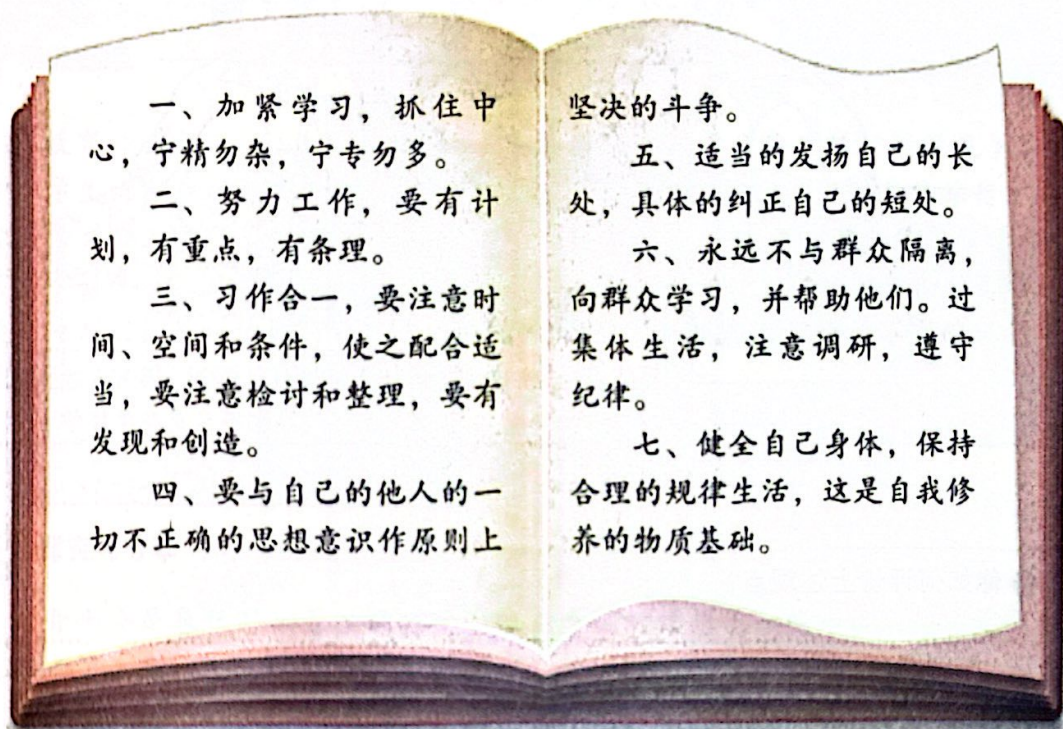 一、加紧学习，抓住中
心，宁精勿杂，宁专勿多。
二、努力工作，要有计
划，有重点，有条理。
三、习作合一，要注意时
间、空间和条件，使之配合适
当，要注意检讨和整理，要有
发现和创造。
四、要与自己的他人的一
切不正确的思想意识作原则上
坚决的斗争。
五、适当的发扬自己的长
处，具体的纠正自己的短处。
六、永远不与群众隔离，
向群众学习，并帮助他们。过
集体生活，注意调研，遵守
纪律。
七、健全自己身体，保持
合理的规律生活，这是自我修
养的物质基础。